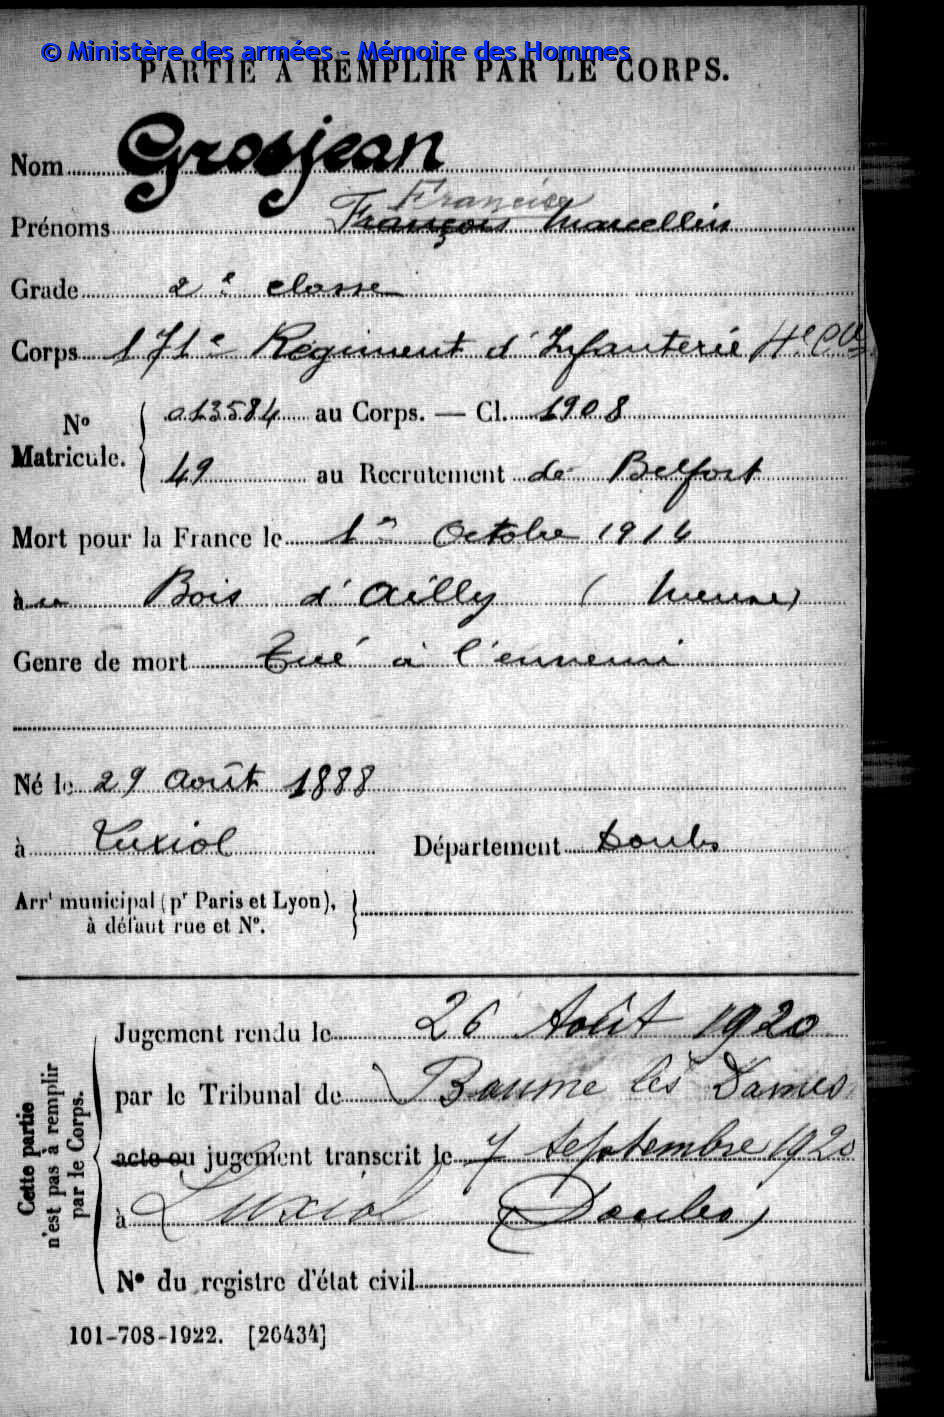 © Ministère des armées - Mémoire des Hommes
PARTIE À REMPLIR PAR LE CORPS.
Nom Grosjean
Francise
Prénoms François Marcellin
Grade 2e classe
Corps 171e Régiment d'Infanterie 4e Cie
No Matricule. { 013584 au Corps. — Cl. 1908
49 au Recrutement de Belfort
Mort pour la France le 1er Octobre 1914
à au Bois d'Ailly (Meuse)
Genre de mort Tué à l'ennemi
Né le 29 Août 1888
à Luxiol Département Doubs
Arrt municipal (pr Paris et Lyon),
à défaut rue et No.
Cette partie n'est pas à remplir par le Corps.
Jugement rendu le 26 Août 1920
par le Tribunal de Baume les Dames
acte ou jugement transcrit le 7 Septembre 1920
à Luxiol (Doubs)
No du registre d'état civil
101-708-1922. [26434]